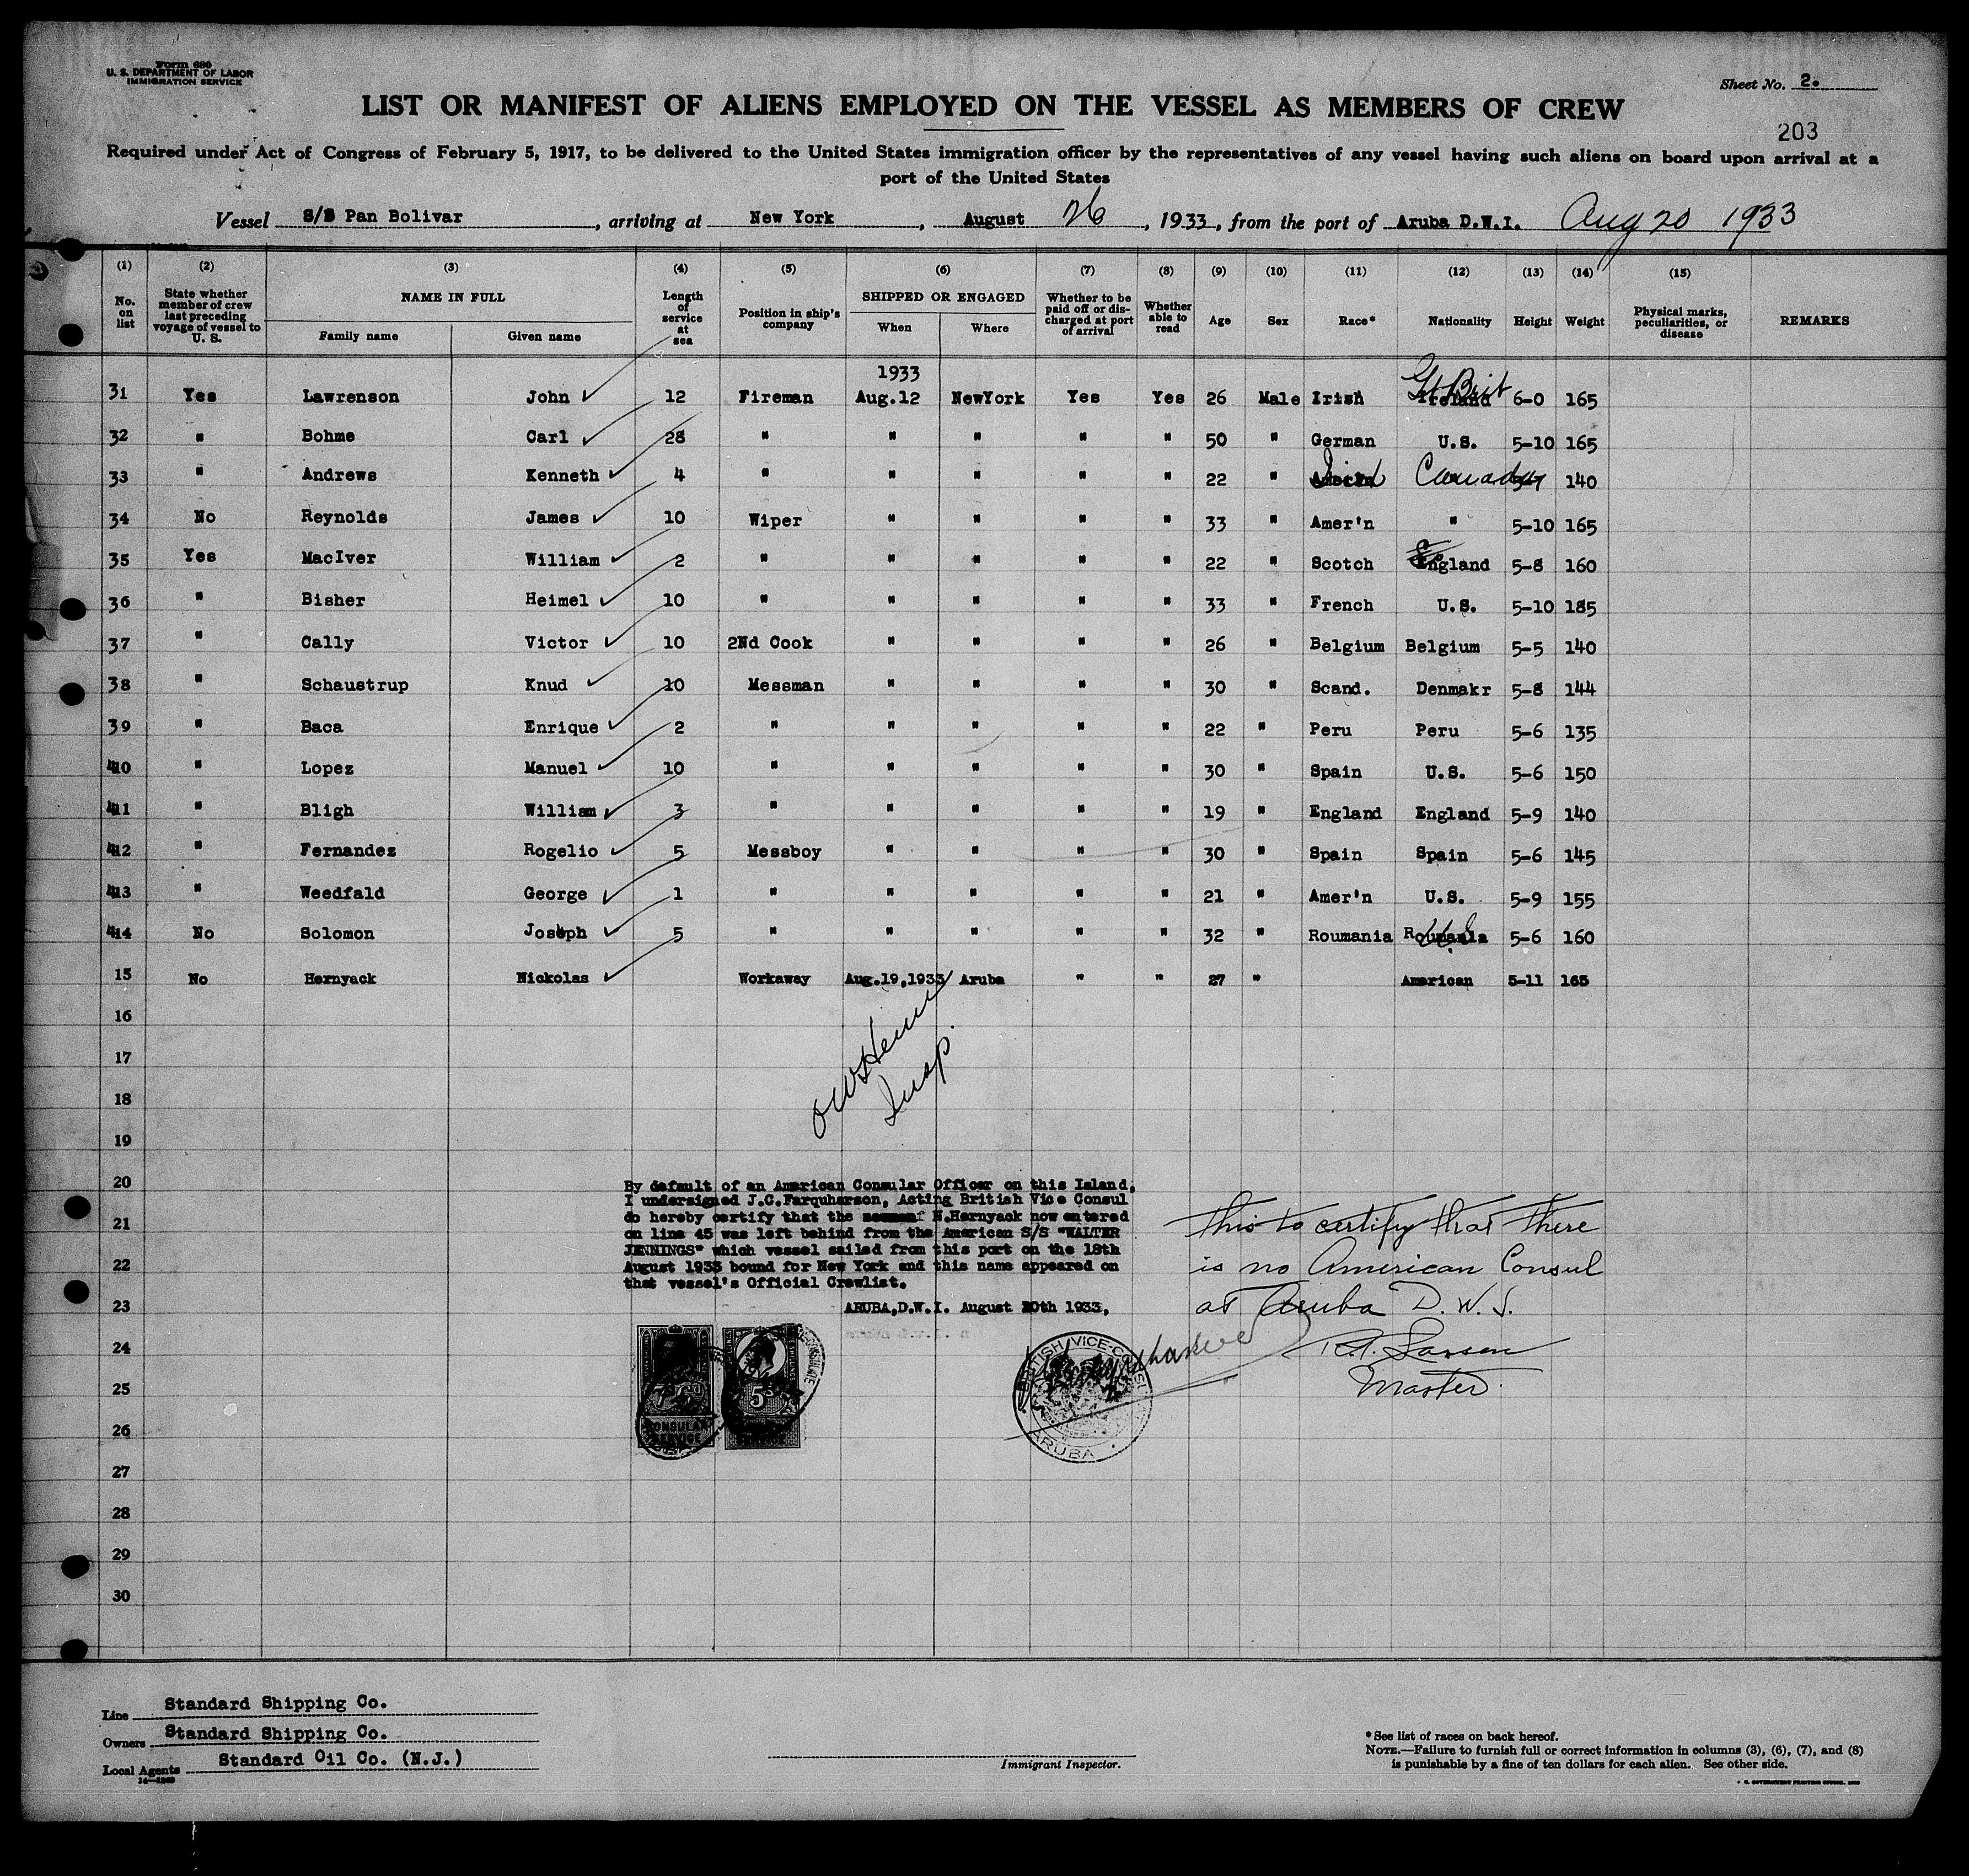 Form 680
U. S. DEPARTMENT OF LABOR
IMMIGRATION SERVICE
Sheet No. 2.
LIST OR MANIFEST OF ALIENS EMPLOYED ON THE VESSEL AS MEMBERS OF CREW
203
Required under Act of Congress of February 5, 1917, to be delivered to the United States immigration officer by the representatives of any vessel having such aliens on board upon arrival at a
port of the United States
Vessel S/S Pan Bolivar, arriving at New York, August 26, 1933, from the port of Aruba D.W.I. Aug 20 1933
(1) (2) (3) (4) (5) (6) (7) (8) (9) (10) (11) (12) (13) (14) (15)
No. on list
State whether member of crew last preceding voyage of vessel to U. S.
NAME IN FULL
Family name Given name
Length of service at sea
Position in ship's company
SHIPPED OR ENGAGED
When Where
Whether to be paid off or discharged at port of arrival
Whether able to read
Age Sex Race* Nationality Height Weight
Physical marks, peculiarities, or disease
REMARKS
1933
Gt Brit
31 Yes Lawrenson John 12 Fireman Aug.12 NewYork Yes Yes 26 Male Irish Ireland 6-0 165
32 " Bohme Carl 28 " " " " " 50 " German U.S. 5-10 165
33 " Andrews Kenneth 4 " " " " " 22 " Canada 140
34 No Reynolds James 10 Wiper " " " " 33 " Amer'n " 5-10 165
35 Yes MacIver William 2 " " " " " 22 " Scotch England 5-8 160
36 " Bisher Heimel 10 " " " " " 33 " French U.S. 5-10 185
37 " Cally Victor 10 2Nd Cook " " " " 26 " Belgium Belgium 5-5 140
38 " Schaustrup Knud 10 Messman " " " " 30 " Scand. Denmakr 5-8 144
39 " Baca Enrique 2 " " " " " 22 " Peru Peru 5-6 135
40 " Lopez Manuel 10 " " " " " 30 " Spain U.S. 5-6 150
41 " Bligh William 3 " " " " " 19 " England England 5-9 140
42 " Fernandez Rogelio 5 Messboy " " " " 30 " Spain Spain 5-6 145
43 " Weedfald George 1 " " " " " 21 " Amer'n U.S. 5-9 155
44 No Solomon Joseph 5 " " " " " 32 " Roumania Roumania U.S. 5-6 160
15 No Hernyack Nickolas Workaway Aug.19,1933 Aruba " " 27 " American 5-11 165
16
17
18
19
20
21
22
23
24
25
26
27
28
29
30
Insp.
By default of an American Consular Officer on this Island,
I undersigned J.C.Farquharson, Acting British Vice Consul
do hereby certify that the N.Hernyack now entered
on line 45 was left behind from the American S/S "WALTER
JENNINGS" which vessel sailed from this port on the 18th
August 1933 bound for New York and this name appeared on
that vessel's Official Crewlist.
ARUBA,D.W.I. August 20th 1933,
This to certify that there
is no American Consul
at Aruba D.W.I.
R.A. Larsen
Master.
CONSULAR SERVICE
5s
BRITISH VICE-CONSUL
ARUBA
Line Standard Shipping Co.
Owners Standard Shipping Co.
Local Agents Standard Oil Co. (N.J.)
14—1269
Immigrant Inspector.
*See list of races on back hereof.
NOTE.—Failure to furnish full or correct information in columns (3), (6), (7), and (8)
is punishable by a fine of ten dollars for each alien. See other side.